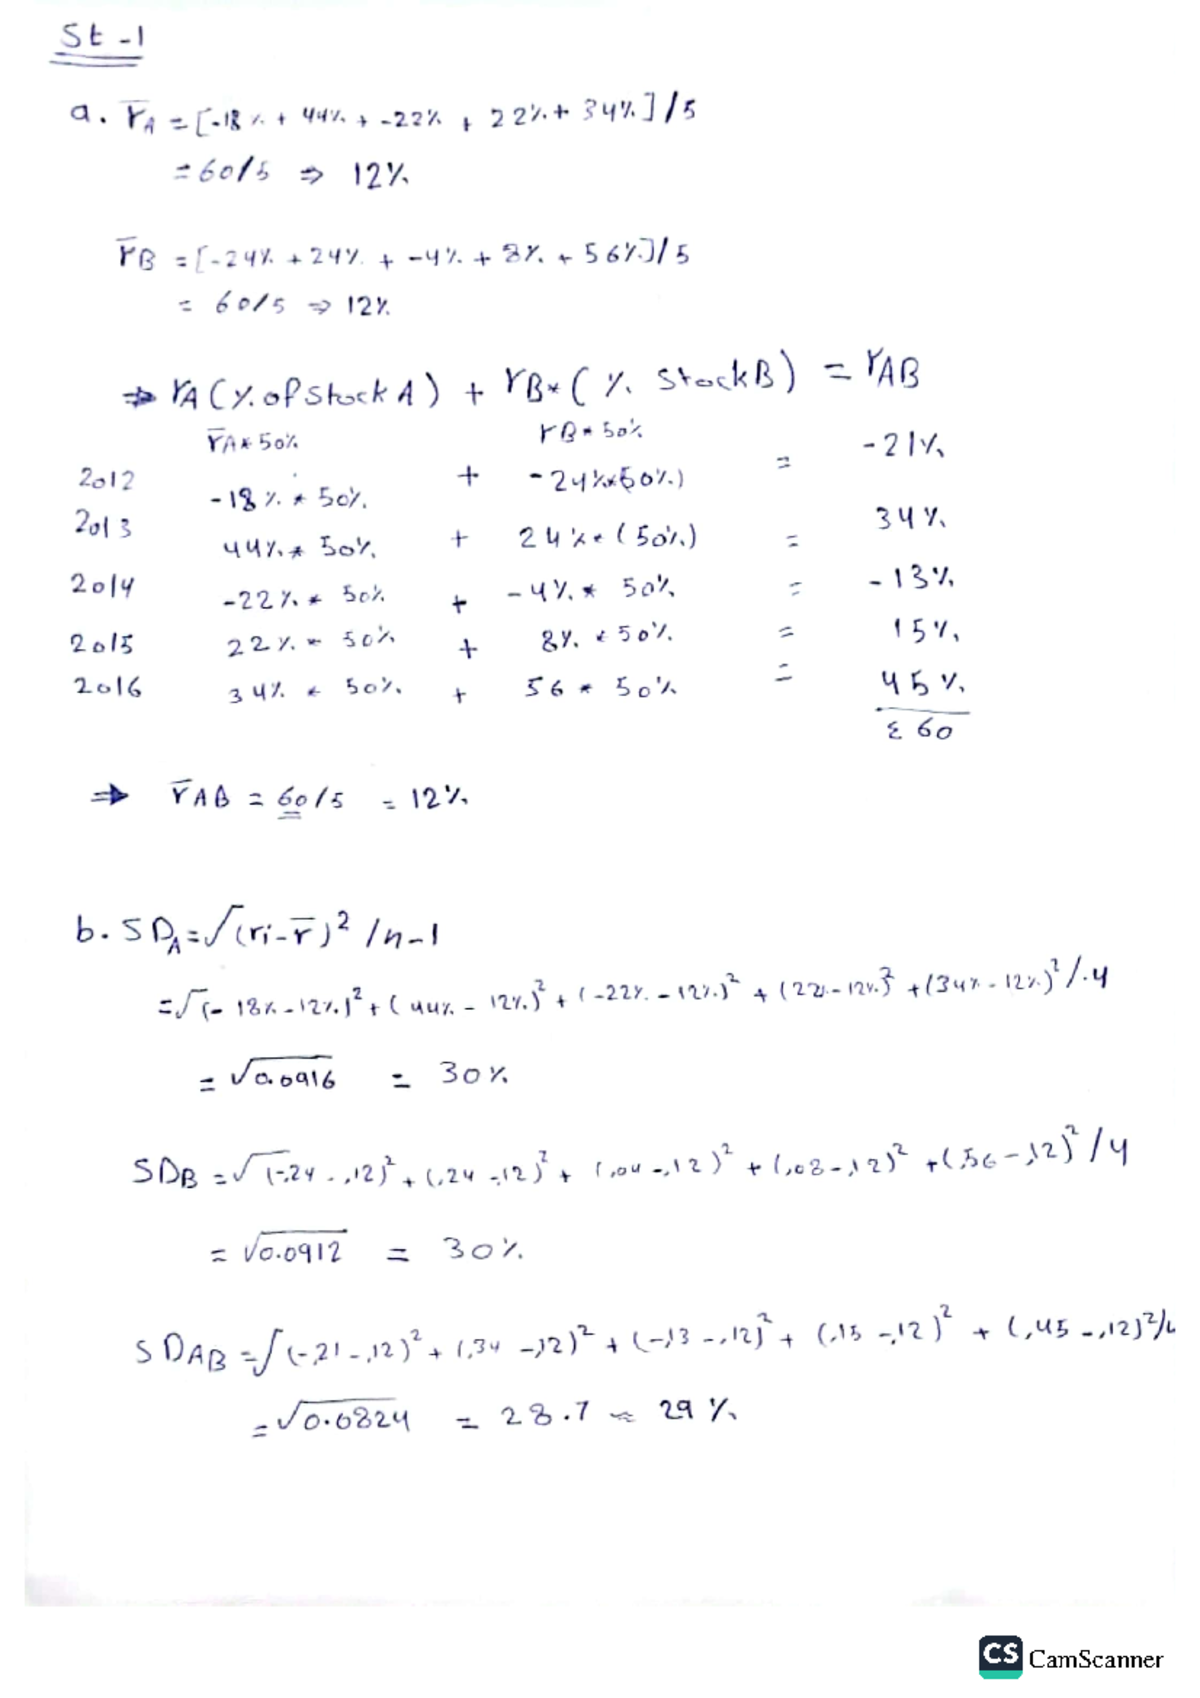 St-1
a. r̅A = [-18% + 44% + -22% + 22% + 34%]/5
= 60/5 ⇒ 12%
r̅B = [-24% + 24% + -4% + 8% + 56%]/5
= 60/5 ⇒ 12%
⇒ rA (% of Stock A) + rB * (% Stock B) = rAB
r̅A * 50% rB * 50%
2012 -18% * 50% + -24% * 50%) = -21%
2013 44% * 50% + 24% * (50%) = 34%
2014 -22% * 50% + -4% * 50% = -13%
2015 22% * 50% + 8% * 50% = 15%
2016 34% * 50% + 56 * 50% = 45%
Σ 60
⇒ r̅AB = 60/5 = 12%
b. SDA = √(ri - r̅)² /n-1
= √(-18% - 12%)² + (44% - 12%)² + (-22% - 12%)² + (22% - 12%)² + (34% - 12%)² / 4
= √0.0916 = 30%
SDB = √(-.24 - .12)² + (.24 - .12)² + (.04 - .12)² + (.08 - .12)² + (.56 - .12)² / 4
= √0.0912 = 30%
SDAB = √(-.21 - .12)² + (.34 - .12)² + (-.13 - .12)² + (.15 - .12)² + (.45 - .12)²/
= √0.0824 = 28.7 ≈ 29%
CS CamScanner